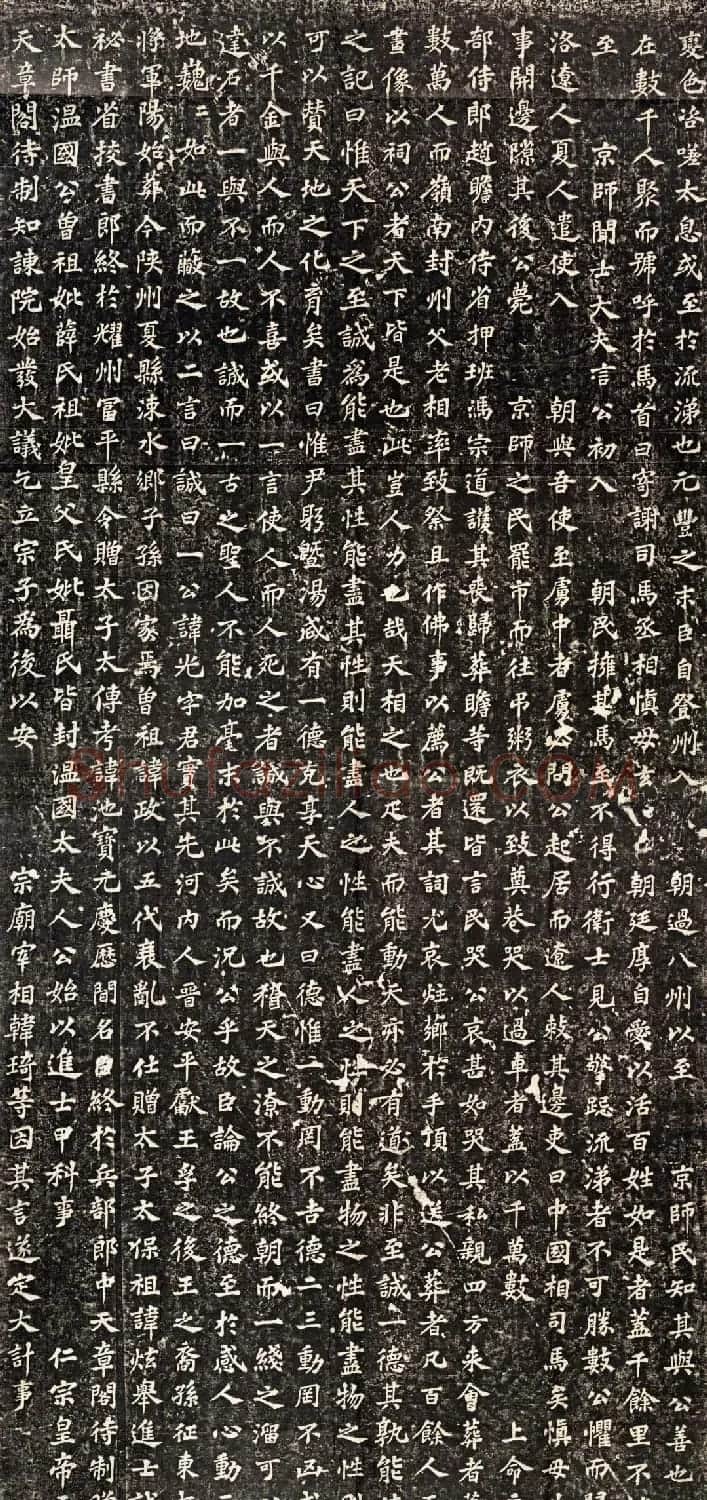 變色咨嗟太息或至於流涕也元豐之末臣自登州入 朝過八州以至 京師民知其與公善也
在數千人聚而號呼於馬首曰寄謝司馬丞相慎毋去 朝廷厚自愛以活百姓如是者蓋千餘里不
至 京師聞士大夫言公初入 朝民擁其馬至不得行衛士見公擎跽流涕者不可勝數公懼而歸
洛遼人夏人遣使入 朝與吾使至虜中者虜必問公起居而遼人敕其邊吏曰中國相司馬矣慎毋
事開邊隙其後公薨 京師之民罷市而往弔鬻衣以致奠巷哭以過車者蓋以千萬數 上命
部侍郎趙瞻內侍省押班馮宗道護其喪歸葬瞻等既還皆言民哭公哀甚如哭其私親四方來會葬者
數萬人而嶺南封州父老相率致祭且作佛事以薦公者其詞尤哀炷薌於手頂以送公葬者凡百餘人
畫像以祠公者天下皆是也此豈人力也哉天相之也疋夫而能動天亦必有道矣非至誠一德其孰能
之記曰惟天下之至誠為能盡其性能盡其性則能盡人之性能盡人之性則能盡物之性能盡物之性則
可以贊天地之化育矣書曰惟尹躬暨湯咸有一德克享天心又曰德惟一動罔不吉德二三動罔不凶
以千金與人而人不喜或以一言使人而人死之者誠與不誠故也稽天之潦不能終朝而一綫之溜可
達石者一與不一故也誠而一古之聖人不能加毫末於此矣而況公乎故臣論公之德至於感人心動
地巍二如此而蔽之以二言曰誠曰一公諱光字君實其先河內人晉安平獻王孚之後王之裔孫征東
將軍陽始葬今陝州夏縣涑水鄉子孫因家焉曾祖諱政以五代衰亂不仕贈太子太保祖諱炫舉進士試
祕書省校書郎終於耀州富平縣令贈太子太傅考諱池寶元慶曆間名臣終於兵部郎中天章閣待制贈
太師溫國公曾祖妣薛氏祖妣皇父氏妣聶氏皆封溫國太夫人公始以進士甲科事 仁宗皇帝
天章閣待制知諫院始發大議乞立宗子為後以安 宗廟宰相韓琦等因其言遂定大計事
Shufaziliao.COM